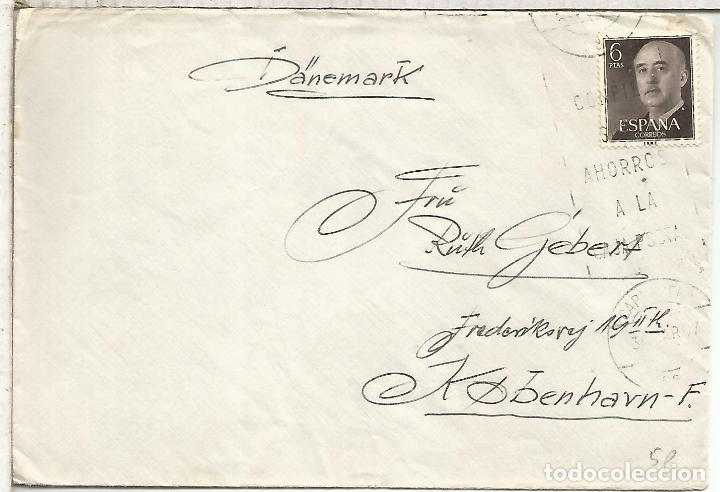 Dänemark
6
PTAS
ESPAÑA
CORREOS
AHORROS
A LA
Fru
Ruth Gebert
Frederiksvej 19 II K.
København-F.
58
todocoleccion